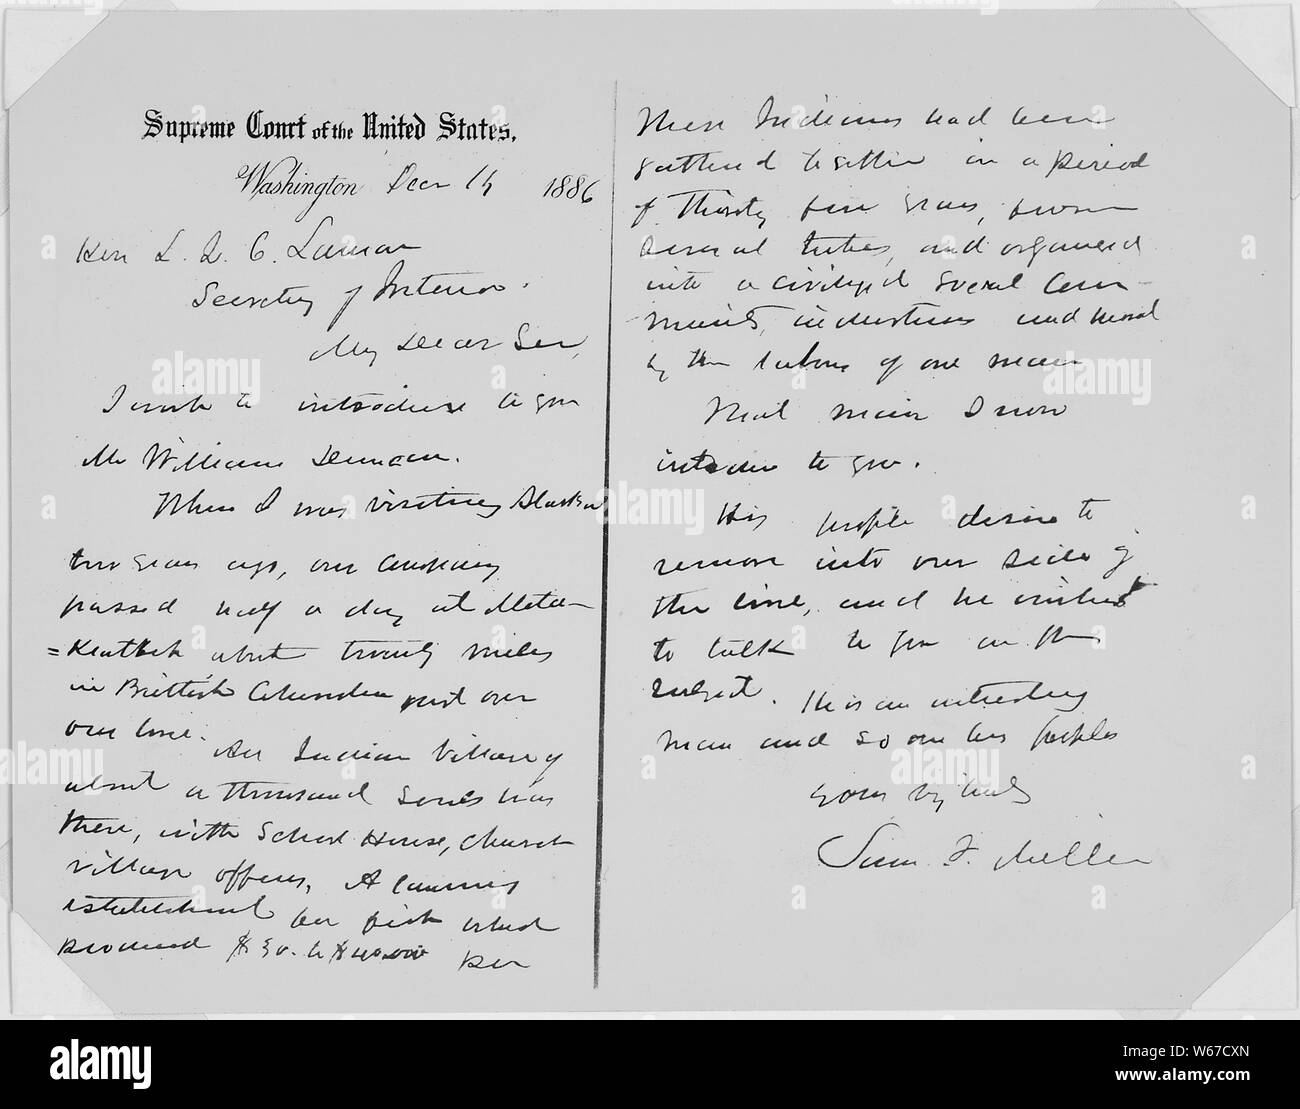 Supreme Court of the United States.
Washington Decr 14 1886
Hon L. Q. C. Lamar
Secretary of Interior.
My Dear Sir,
I wish to introduce to you
Mr William Duncan.
When I was visiting Alaska
two years ago, our company
passed half a day at Metla-
=Kahtlah about twenty miles
in British Columbia just over
our line.
An Indian Village of
about a thousand souls was
there, with School House, Church
village offices, A canning
establishment for fish which
produced $30. to $40.000 per
These Indians had been
gathered together in a period
of thirty five years, from
several tribes, and organized
into a civilized social Com-
munity, industrious and moral
by the labors of one man
That man I now
introduce to you.
His people desire to
remove into our side of
the line, and he wishes
to talk to you on the
subject. He is an interesting
man and so are his people
yours truly
Sam. F. Miller
alamy
a
Image ID: W67CXN
www.alamy.com